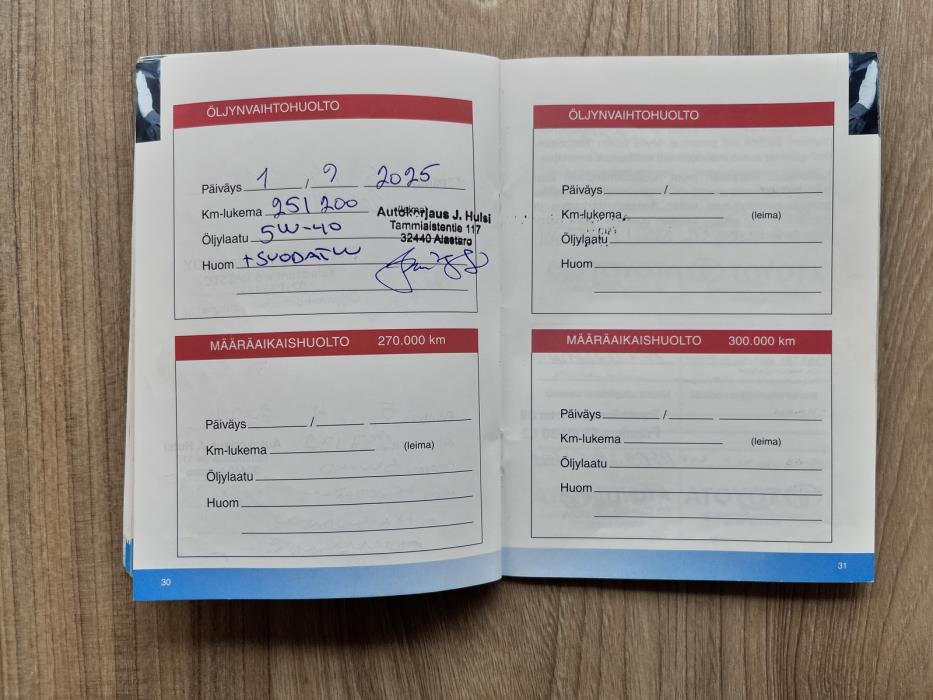 ÖLJYNVAIHTOHUOLTO
Päiväys 1 / 9 2025
Km-lukema 251 200 (leima)
Öljylaatu 5W-40
Huom +SUODATIN
Autokorjaus J. Hulsi
Tammiaistentie 117
32440 Alastaro
MÄÄRÄAIKAISHUOLTO 270.000 km
Päiväys /
Km-lukema (leima)
Öljylaatu
Huom
30
ÖLJYNVAIHTOHUOLTO
Päiväys /
Km-lukema (leima)
Öljylaatu
Huom
MÄÄRÄAIKAISHUOLTO 300.000 km
Päiväys /
Km-lukema (leima)
Öljylaatu
Huom
31